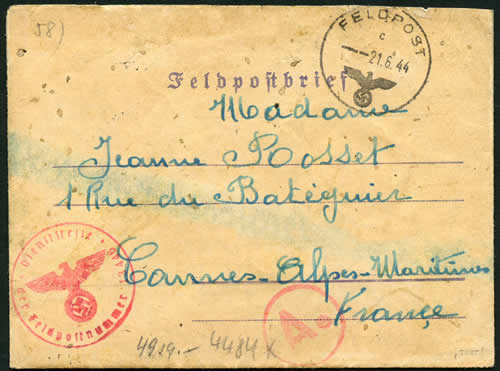 58)
FELDPOST
c
21.6.44
Feldpostbrief
Madame
Jeanne Rosset
1 Rue du Batéguier
Cannes-Alpes-Maritimes
France
der Feldpostnummer
A
4929.- 4484 K